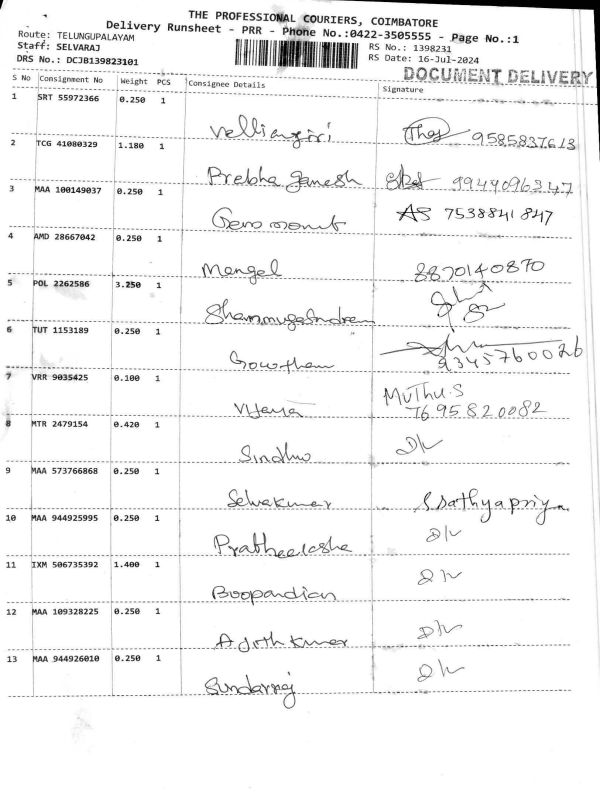 THE PROFESSIONAL COURIERS, COIMBATORE
Delivery Runsheet - PRR - Phone No.:0422-3505555 - Page No.:1
Route: TELUNGUPALAYAM
Staff: SELVARAJ
RS No.: 1398231
DRS No.: DCJB139823101
RS Date: 16-Jul-2024
DOCUMENT DELIVERY
S No Consignment No Weight PCS Consignee Details Signature
1 SRT 55972366 0.250 1
Velliangiri 9585837613
2 TCG 41080329 1.180 1
Prebha Ganesh 9944096347
3 MAA 100149037 0.250 1
AS 7538841847
4 AMD 28667042 0.250 1
Mangal 8870140870
5 POL 2262586 3.250 1
6 TUT 1153189 0.250 1
Gowtham 9345760026
7 VRR 9035425 0.100 1
Vijaya MUTHU.S
7695820082
8 MTR 2479154 0.420 1
Sindhu D/r
9 MAA 573766868 0.250 1
Selvakumar S.Sathyapriya
10 MAA 944925995 0.250 1
D/r
11 IXM 506735392 1.400 1
Boopandian D/r
12 MAA 109328225 0.250 1
Ajith Kumar D/r
13 MAA 944926010 0.250 1
Sundarraj D/r